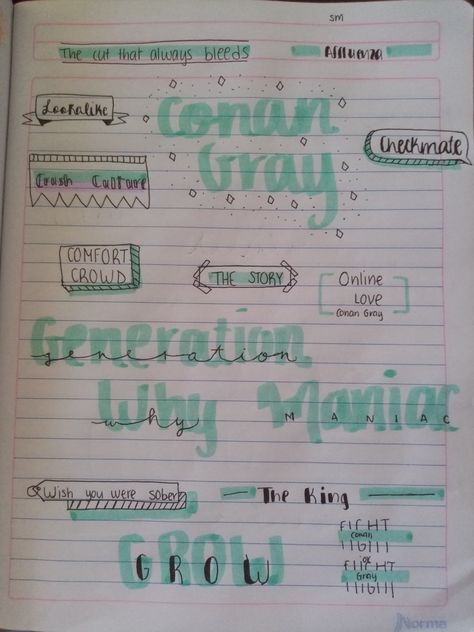 sm
The cut that always bleeds
Affluenza
Lookalike
Conan
Gray
Checkmate
Crush Culture
COMFORT
CROWD
THE STORY
Online
Love
Conan Gray
Generation
generation
Why Maniac
why MANIAC
Wish you were sober
The King
GROW
GROW
FIGHT
Conan
or
FLIGHT
Gray
Norma